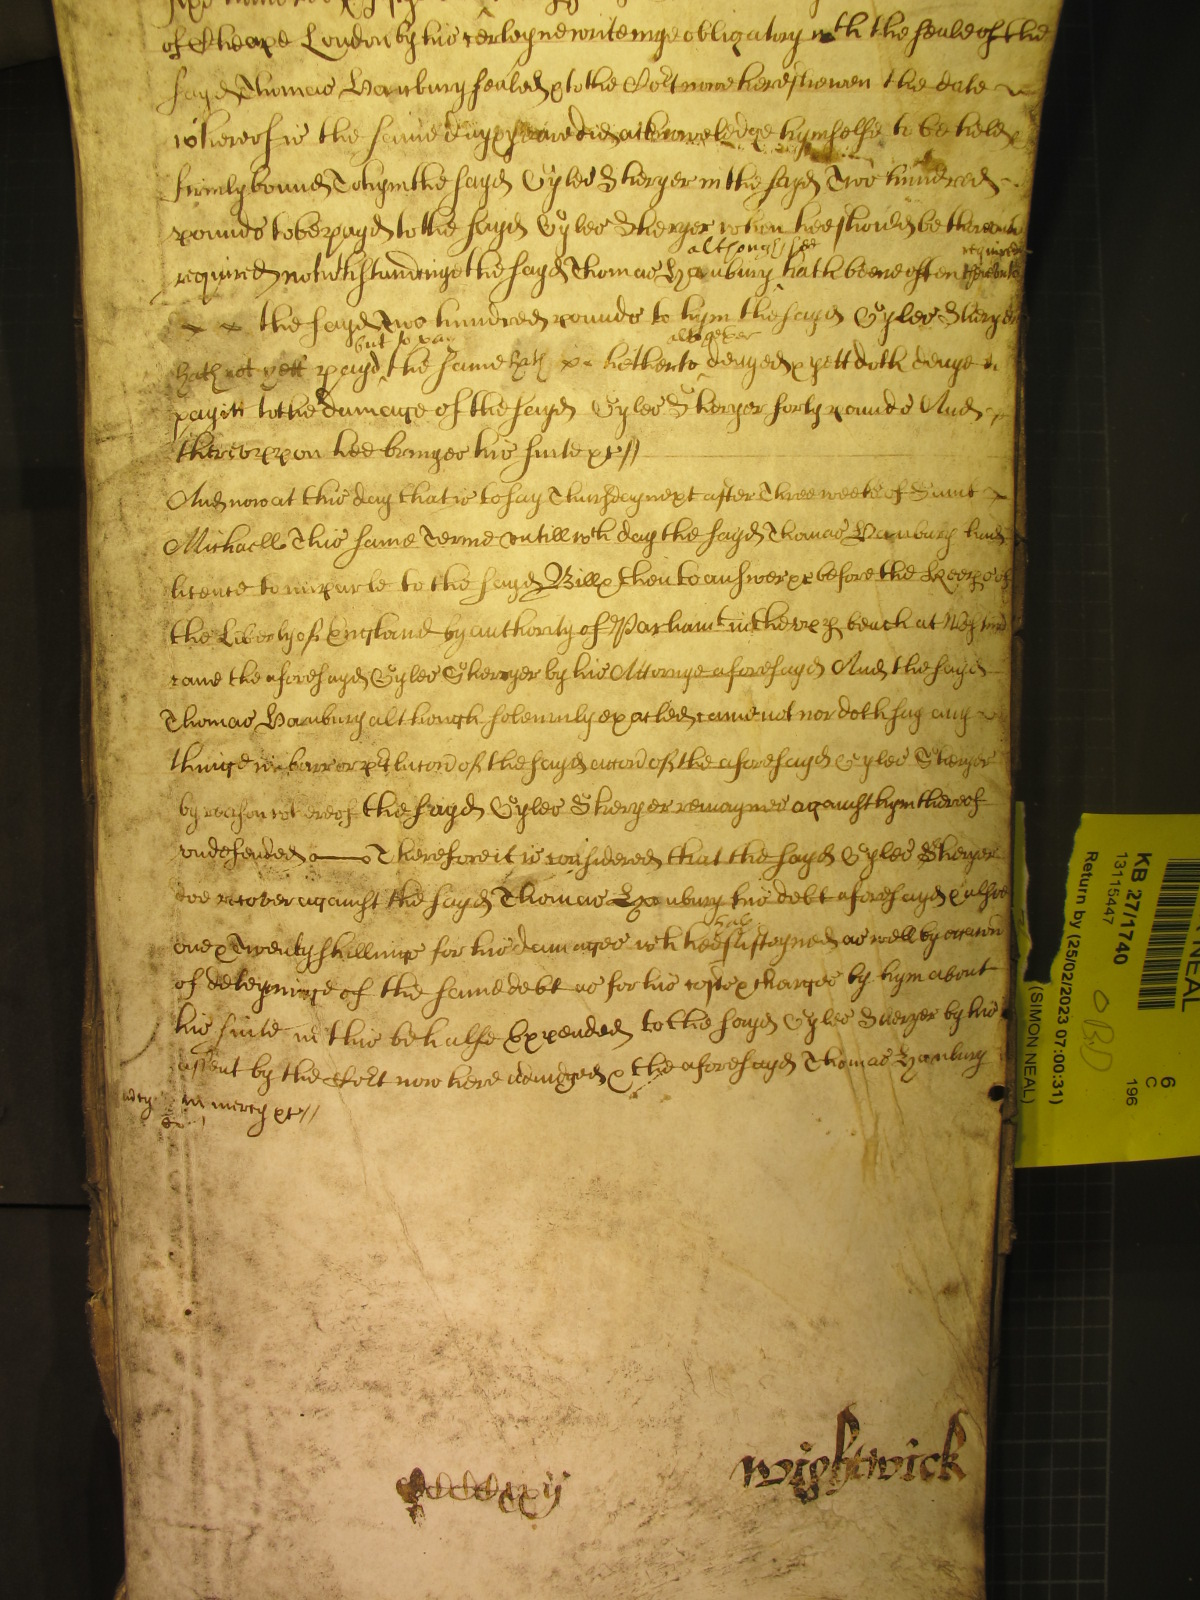 of Cheape London by his certeyne writeinge obligatory with the seale of the
sayd Thomas Hanbury sealed & to the Cort nowe here shewen the date
whereof is the same day & yeare did acknowledge hymselfe to be held
firmly bound To hym the sayd Gyles Sherger in the sayd Two hundred
pounds to be payd to the sayd Gyles Sherger when hee should be thereunto
required notwithstandinge the sayd Thomas Hanbury although hee hath beene often required thereunto
the sayd Two hundred pounds to hym the sayd Gyles Sherger
hath not yett payd but to pay the same hath hitherto altogether denyed & yett doth denye to
pay itt to the damage of the sayd Gyles Sherger forty pounds And
thereuppon hee bringes his suite &c
And now at this day that is to say Thursday next after Three weeks of Saint
Michaell This same Terme untill wch day the sayd Thomas Hanbury had
licence to imparle to the sayd Bill & then to answer &c before the Keeps of
the Liberty of England by authority of Parliamt in the upp bench at Westmr
came the aforesayd Gyles Sherger by his Attorny aforesayd And the sayd
Thomas Hanbury although solemnly exacted came not nor doth say any
thinge in barr or pclucon of the sayd accon of the aforesayd Gyles Sherger
by reason whereof the sayd Gyles Sherger remaynes against hym thereof
undefended Therefore it is considered that the sayd Gyles Sherger
doe recover against the sayd Thomas Hanbury his debt aforesayd & alsoe
one & Twenty shillings for his damages wh hee hath susteyned as well by occasion
of deteyninge of the same debt as for his costs & charges by hym about
his suite in this behalfe Expended to the sayd Gyles Sherger by his
assent by the Cort now here adiudged & the aforesayd Thomas Hanbury
mcy in mercy &c
Wightwick
KB 27/1740
13115447
Return by (25/02/2023 07:00:31)
(SIMON NEAL)
NEAL
6
C
196